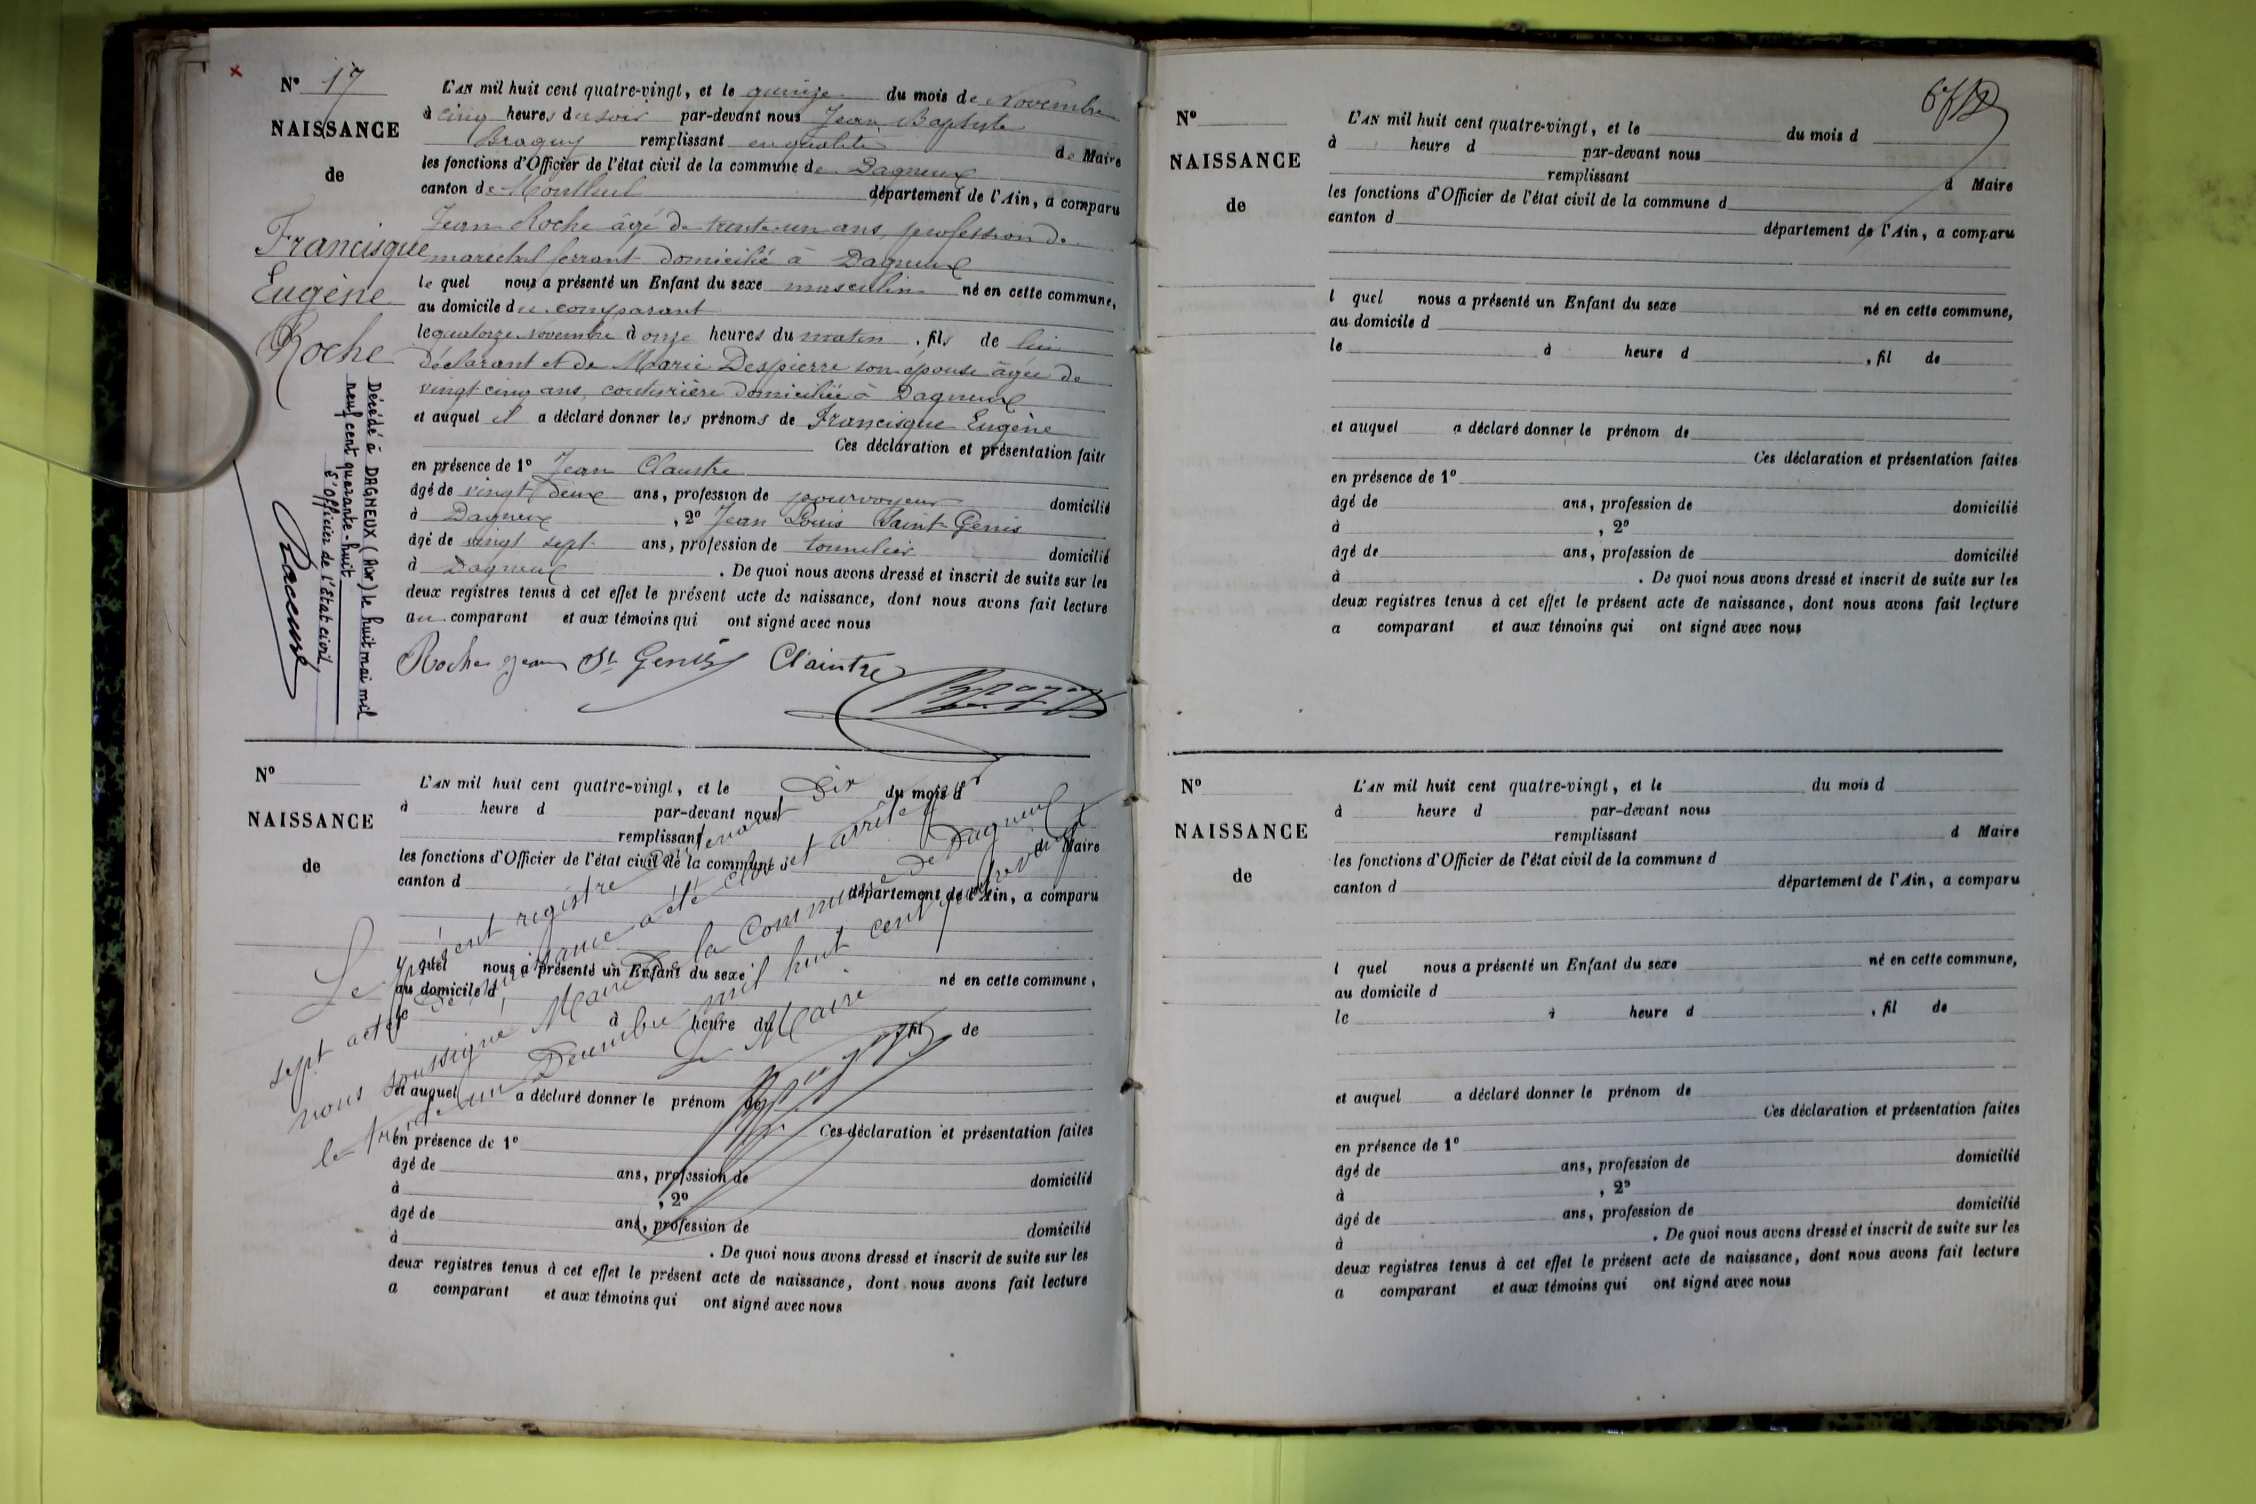 N° 17
NAISSANCE
de
Francisque
Eugène
Roche
Décédé à DAGNEUX (Ain) le huit mai mil
neuf cent quarante-huit
L'Officier de l'Etat civil,
L'AN mil huit cent quatre-vingt, et le quinze du mois de Novembre
à cinq heures du soir par-devant nous Jean Baptiste
Bragny remplissant en qualité de Maire
les fonctions d'Officier de l'état civil de la commune de Dagneux
canton de Montluel département de l'Ain, a comparu
Jean Roche âgé de trente-un ans, profession de
maréchal ferrant domicilié à Dagneux
le quel nous a présenté un Enfant du sexe masculin né en cette commune,
au domicile du comparant
le quatorze novembre à onze heures du matin, fils de lui
déclarant et de Marie Despierre son épouse âgée de
vingt cinq ans, couturière domiciliée à Dagneux
et auquel il a déclaré donner les prénoms de Francisque Eugène
Ces déclaration et présentation faites
en présence de 1° Jean Claintre
âgé de vingt deux ans, profession de pourvoyeur domicilié
à Dagneux, 2° Jean Louis Saint-Genis
âgé de vingt sept ans, profession de tonnelier domicilié
à Dagneux. De quoi nous avons dressé et inscrit de suite sur les
deux registres tenus à cet effet le présent acte de naissance, dont nous avons fait lecture
au comparant et aux témoins qui ont signé avec nous
Roche Jean St Genis Claintre
N°
NAISSANCE
de
L'AN mil huit cent quatre-vingt, et le du mois d
à heure d par-devant nous
remplissant d Maire
les fonctions d'Officier de l'état civil de la commune d
canton d département de l'Ain, a comparu
l quel nous a présenté un Enfant du sexe né en cette commune,
au domicile d
le à heure du , fil de
et auquel a déclaré donner le prénom de
Ces déclaration et présentation faites
en présence de 1°
âgé de ans, profession de domicilié
à , 2°
âgé de ans, profession de domicilié
à . De quoi nous avons dressé et inscrit de suite sur les
deux registres tenus à cet effet le présent acte de naissance, dont nous avons fait lecture
a comparant et aux témoins qui ont signé avec nous
Le présent registre contenant Dix
sept actes de naissance a été clos et arrêté par
nous soussigné Maire de la Commune de Dagneux
le trente un Décembre mil huit cent quatre vingt
Le Maire
N°
NAISSANCE
de
L'AN mil huit cent quatre-vingt, et le du mois d
à heure d par-devant nous
remplissant d Maire
les fonctions d'Officier de l'état civil de la commune d
canton d département de l'Ain, a comparu
l quel nous a présenté un Enfant du sexe né en cette commune,
au domicile d
le à heure d , fil de
et auquel a déclaré donner le prénom de
Ces déclaration et présentation faites
en présence de 1°
âgé de ans, profession de domicilié
à , 2°
âgé de ans, profession de domicilié
à . De quoi nous avons dressé et inscrit de suite sur les
deux registres tenus à cet effet le présent acte de naissance, dont nous avons fait lecture
a comparant et aux témoins qui ont signé avec nous
N°
NAISSANCE
de
L'AN mil huit cent quatre-vingt, et le du mois d
à heure d par-devant nous
remplissant d Maire
les fonctions d'Officier de l'état civil de la commune d
canton d département de l'Ain, a comparu
l quel nous a présenté un Enfant du sexe né en cette commune,
au domicile d
le à heure d , fil de
et auquel a déclaré donner le prénom de
Ces déclaration et présentation faites
en présence de 1°
âgé de ans, profession de domicilié
à , 2°
âgé de ans, profession de domicilié
à . De quoi nous avons dressé et inscrit de suite sur les
deux registres tenus à cet effet le présent acte de naissance, dont nous avons fait lecture
a comparant et aux témoins qui ont signé avec nous